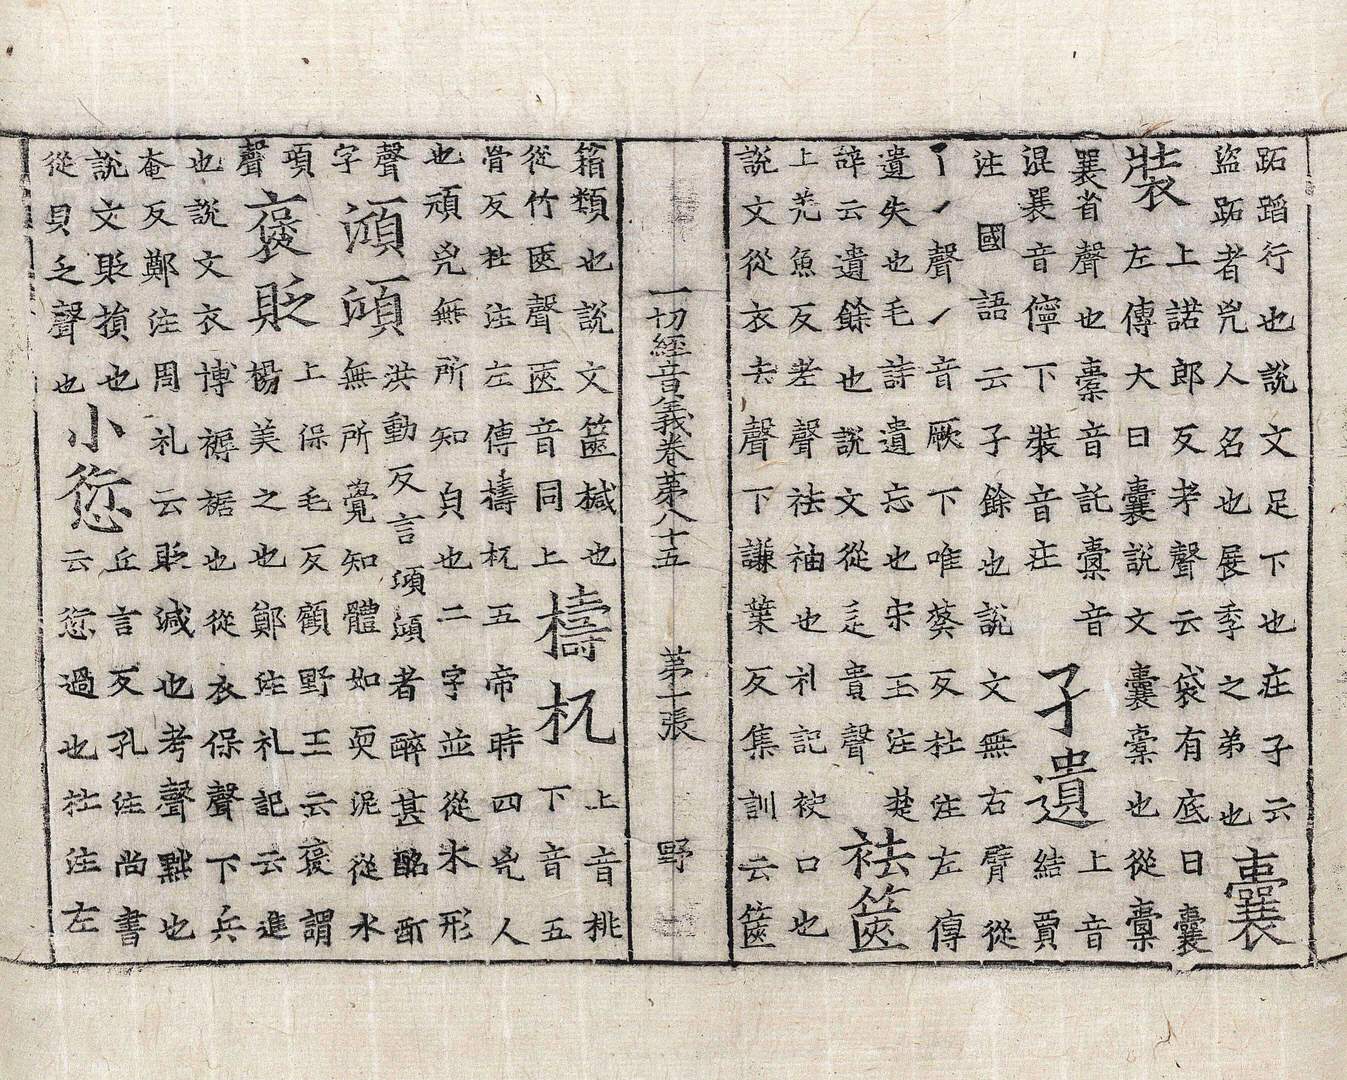 跖蹈行也說文足下也莊子云
盜跖者兇人名也展季之弟也
囊
裝
上諾郎反考聲云袋有底曰囊
左傳大曰囊說文囊橐也從㯻
襄省聲也橐音託㯻音
混襄音儜下裝音庄
孑遺
上音
結賈
注國語云孑餘也說文無右臂從
亅丿聲丿音厥下唯葵反杜注左傳
遺失也毛詩遺忘也宋玉注楚
辝云遺餘也說文從辵貴聲
祛篋
上羌魚反考聲祛袖也礼記袂口也
說文從衣去聲下謙葉反集訓云篋
一切經音義卷第八十五 第十張 野
箱類也說文篋椷也
從竹匧聲匧音同上
檮杌
上音桃
下音五
骨反杜注左傳檮杌五帝時四兇人
也頑兇無所知皃也二字並從木形
聲
字
澒澒
洪動反言澒澒者醉甚酩酊
無所覺知體如耎泥從水
項
聲
褒貶
上保毛反顧野王云褒謂
楊美之也鄭注礼記云進
也說文衣博褥裾也從衣保聲下兵
奄反鄭注周礼云貶減也考聲黜也
說文貶損也
從貝乏聲也
小愆
丘言反孔注尚書
云愆過也杜注左